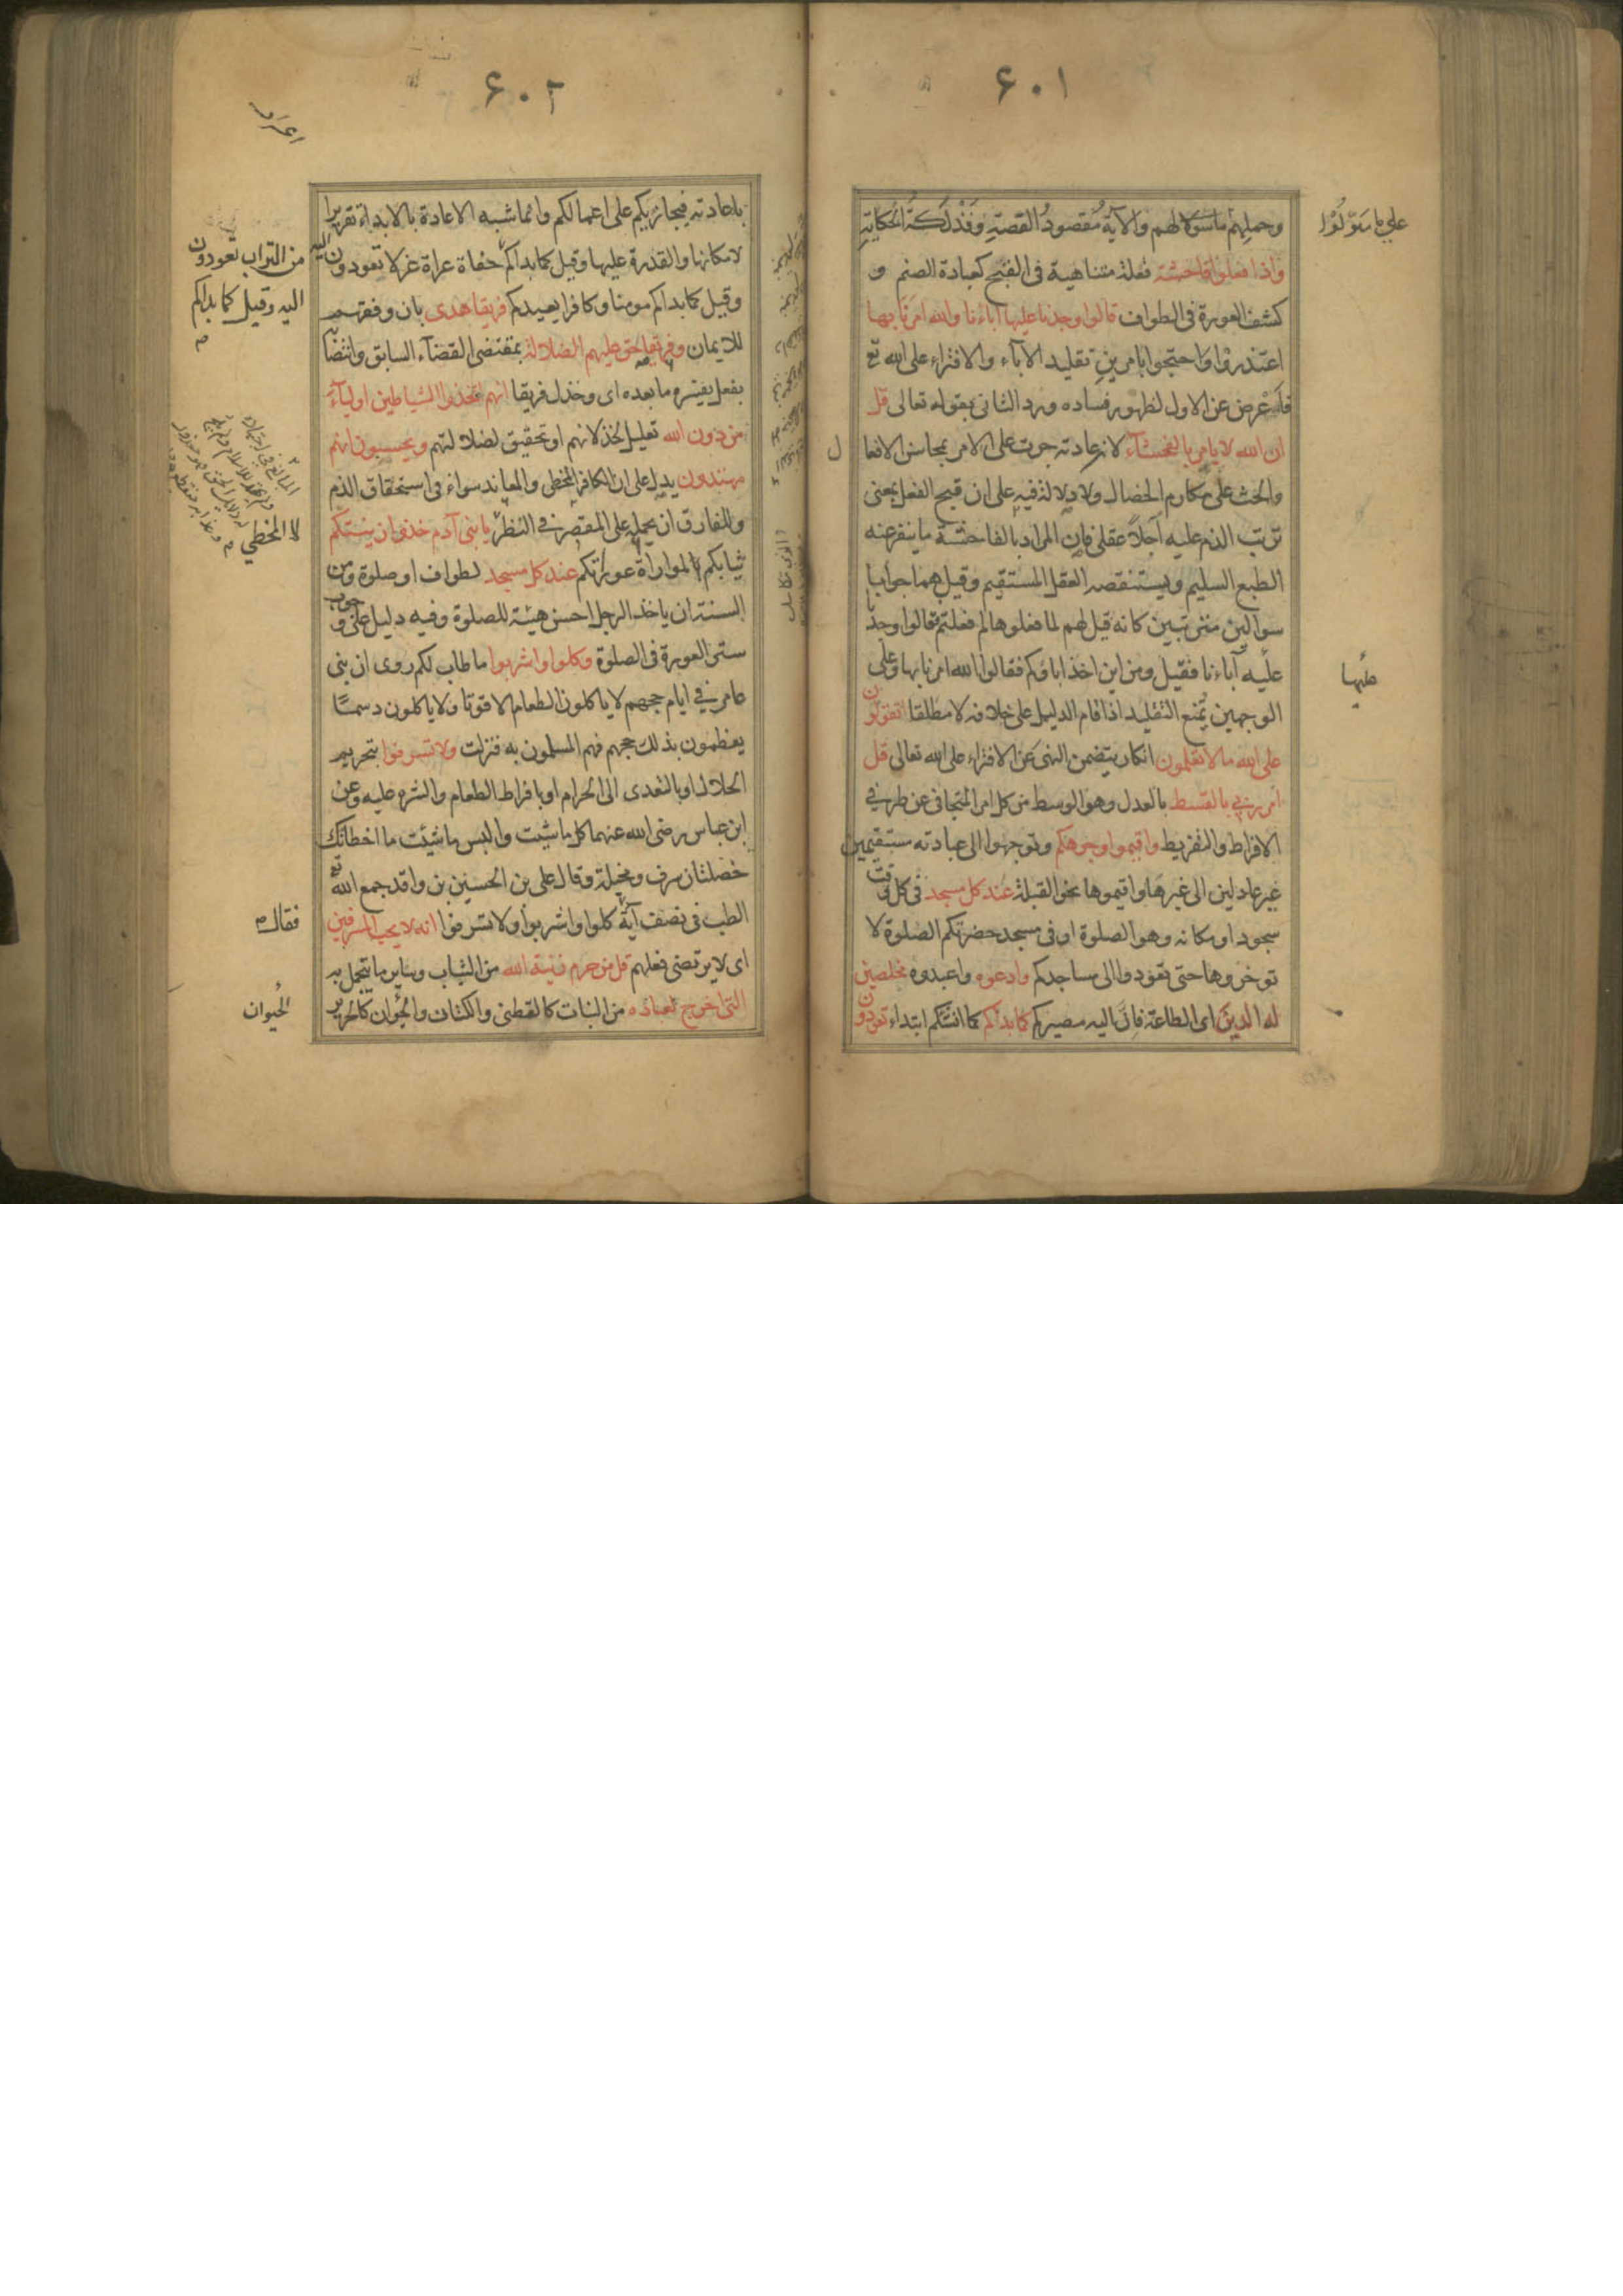 ٦٠١
وحملهم ما سولا لهم والآية مقصود القصة وفذلكة الحكاية
على ما سَوّلوُا
واذا فعلوا فاحشة فعلة متناهية في القبح كعبادة الصنم و
كشف العورة في الطواف قالوا وجدنا عليها آباءنا والله امرنا بها
اعتذروا واحتجوا بامرين تقليد الآباء والافتراء على الله تع
فاعرض عن الاول لظهور فساده ورد الثاني بقوله تعالى قل
ان الله لا يامر بالفحشاء لان عادته جرت على الامر بمحاسن الافعا
ل
والحث على مكارم الخصال ولا دلالة فيه على ان قبح الفعل بمعنى
ترتب الذم عليه آجلاً عقلي فان المراد بالفاحشة ما ينفر عنه
الطبع السليم ويستنقصه العقل المستقيم وقيل هما جوابا
سوالين مترتبين كانه قيل لهم لما فعلوها لم فعلتم فقالوا وجدنا
عليه آباءنا فقيل ومن اين اخذ اباؤكم فقالوا الله امرنا بها وعلى
عليها
الوجهين يمنع التقليد اذا قام الدليل على خلافه لا مطلقا اتقولون
على الله ما لا تعلمون انكار يتضمن النهي عن الافتراء على الله تعالى قل
امر ربي بالقسط بالعدل وهو الوسط من كل امر المتجافي عن طرفي
الافراط والتفريط واقيموا وجوهكم وتوجهوا الى عبادته مستقيمين
غير عادلين الى غيرها واقيموها نحو القبلة عند كل مسجد في كل وقت
سجود او مكانه وهو الصلوة او في مسجد حضرتكم الصلوة لا
توخروها حتى تعودوا الى مساجدكم وادعوه واعبدوه مخلصين
له الدين اي الطاعة فان اليه مصيركم كما بدأكم كما انشأكم ابتداء تعودون
٦٠٢
اعراف
باعادته فيجازيكم على اعمالكم وانما شبه الاعادة بالابداء تقريرا
لامكانها والقدرة عليها وقيل كما بداكم حفاة عراة غرلا تعودون اليه
من التراب تعودون
اليه وقيل كما بداكم
وقيل كما بداكم مومنا وكافرا يعيدكم فريقا هدى بان وفقهم
للايمان وفريقا حق عليهم الضلالة بمقتضى القضاء السابق وانتصا
بفعل يفسره ما بعده اي وخذل فريقا انهم اتخذوا الشياطين اولياء
من دون الله تعليل لخذلانهم او تحقيق لضلالتهم ويحسبون انهم
مهتدون يدل على ان الكافر المخطي والمعاند سواء في استحقاق الذم
وللفارق ان يحمله على المقصر في النظر يا بني آدم خذوا زينتكم
لا المخطي
ثيابكم لمواراة عوراتكم عند كل مسجد لطواف او صلوة ومن
السنة ان ياخذ الرجل احسن هيئة للصلوة وفيه دليل على وجوب
ستر العورة في الصلوة وكلوا واشربوا ما طاب لكم روى ان بني
عامر في ايام حجهم لا ياكلون الطعام الا قوتا ولا ياكلون دسمًا
يعظمون بذلك حجهم فهم المسلمون به فنزلت ولا تسرفوا بتحريم
الحلال او بالتعدي الى الحرام او بافراط الطعام والشره عليه وعن
ابن عباس رضي الله عنهما كل ما شيت والبس ما شيئت ما اخطاتك
خصلتان سرف ومخيلة وقال علي بن الحسين بن واقد جمع الله تع
الطب في نصف آية كلوا واشربوا ولا تسرفوا انه لا يحب المسرفين
فقال
اي لا يرتضي فعلهم قل من حرم زينة الله من الثياب وساير ما يتجمل به
التي اخرج لعباده من النبات كالقطن والكتان والحيوان كالحرير
الحيوان